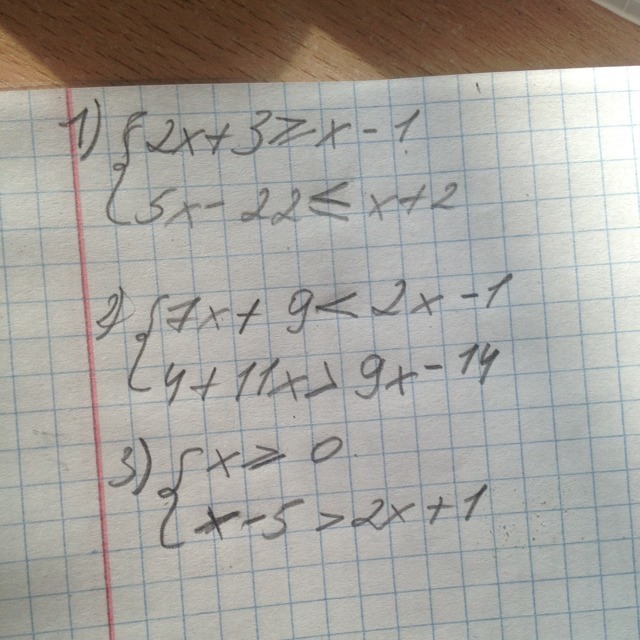 1) { 2x + 3 ≥ x - 1
5x - 22 ≤ x + 2
2) { 7x + 9 < 2x - 1
4 + 11x > 9x - 14
3) { x ≥ 0
x - 5 > 2x + 1